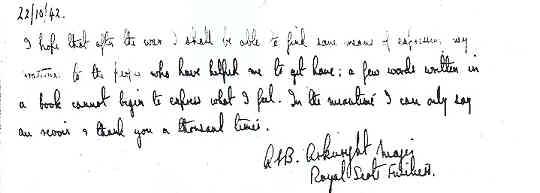 22/10/42.
I hope that after the war I shall be able to find some means of expressing my
to the people who have helped me to get home; a few words written in
a book cannot begin to express what I feel. In the meantime I can only say
au revoir & thank you a thousand times.
A.S.B. Arkwright Major
Royal Scots Fusiliers.